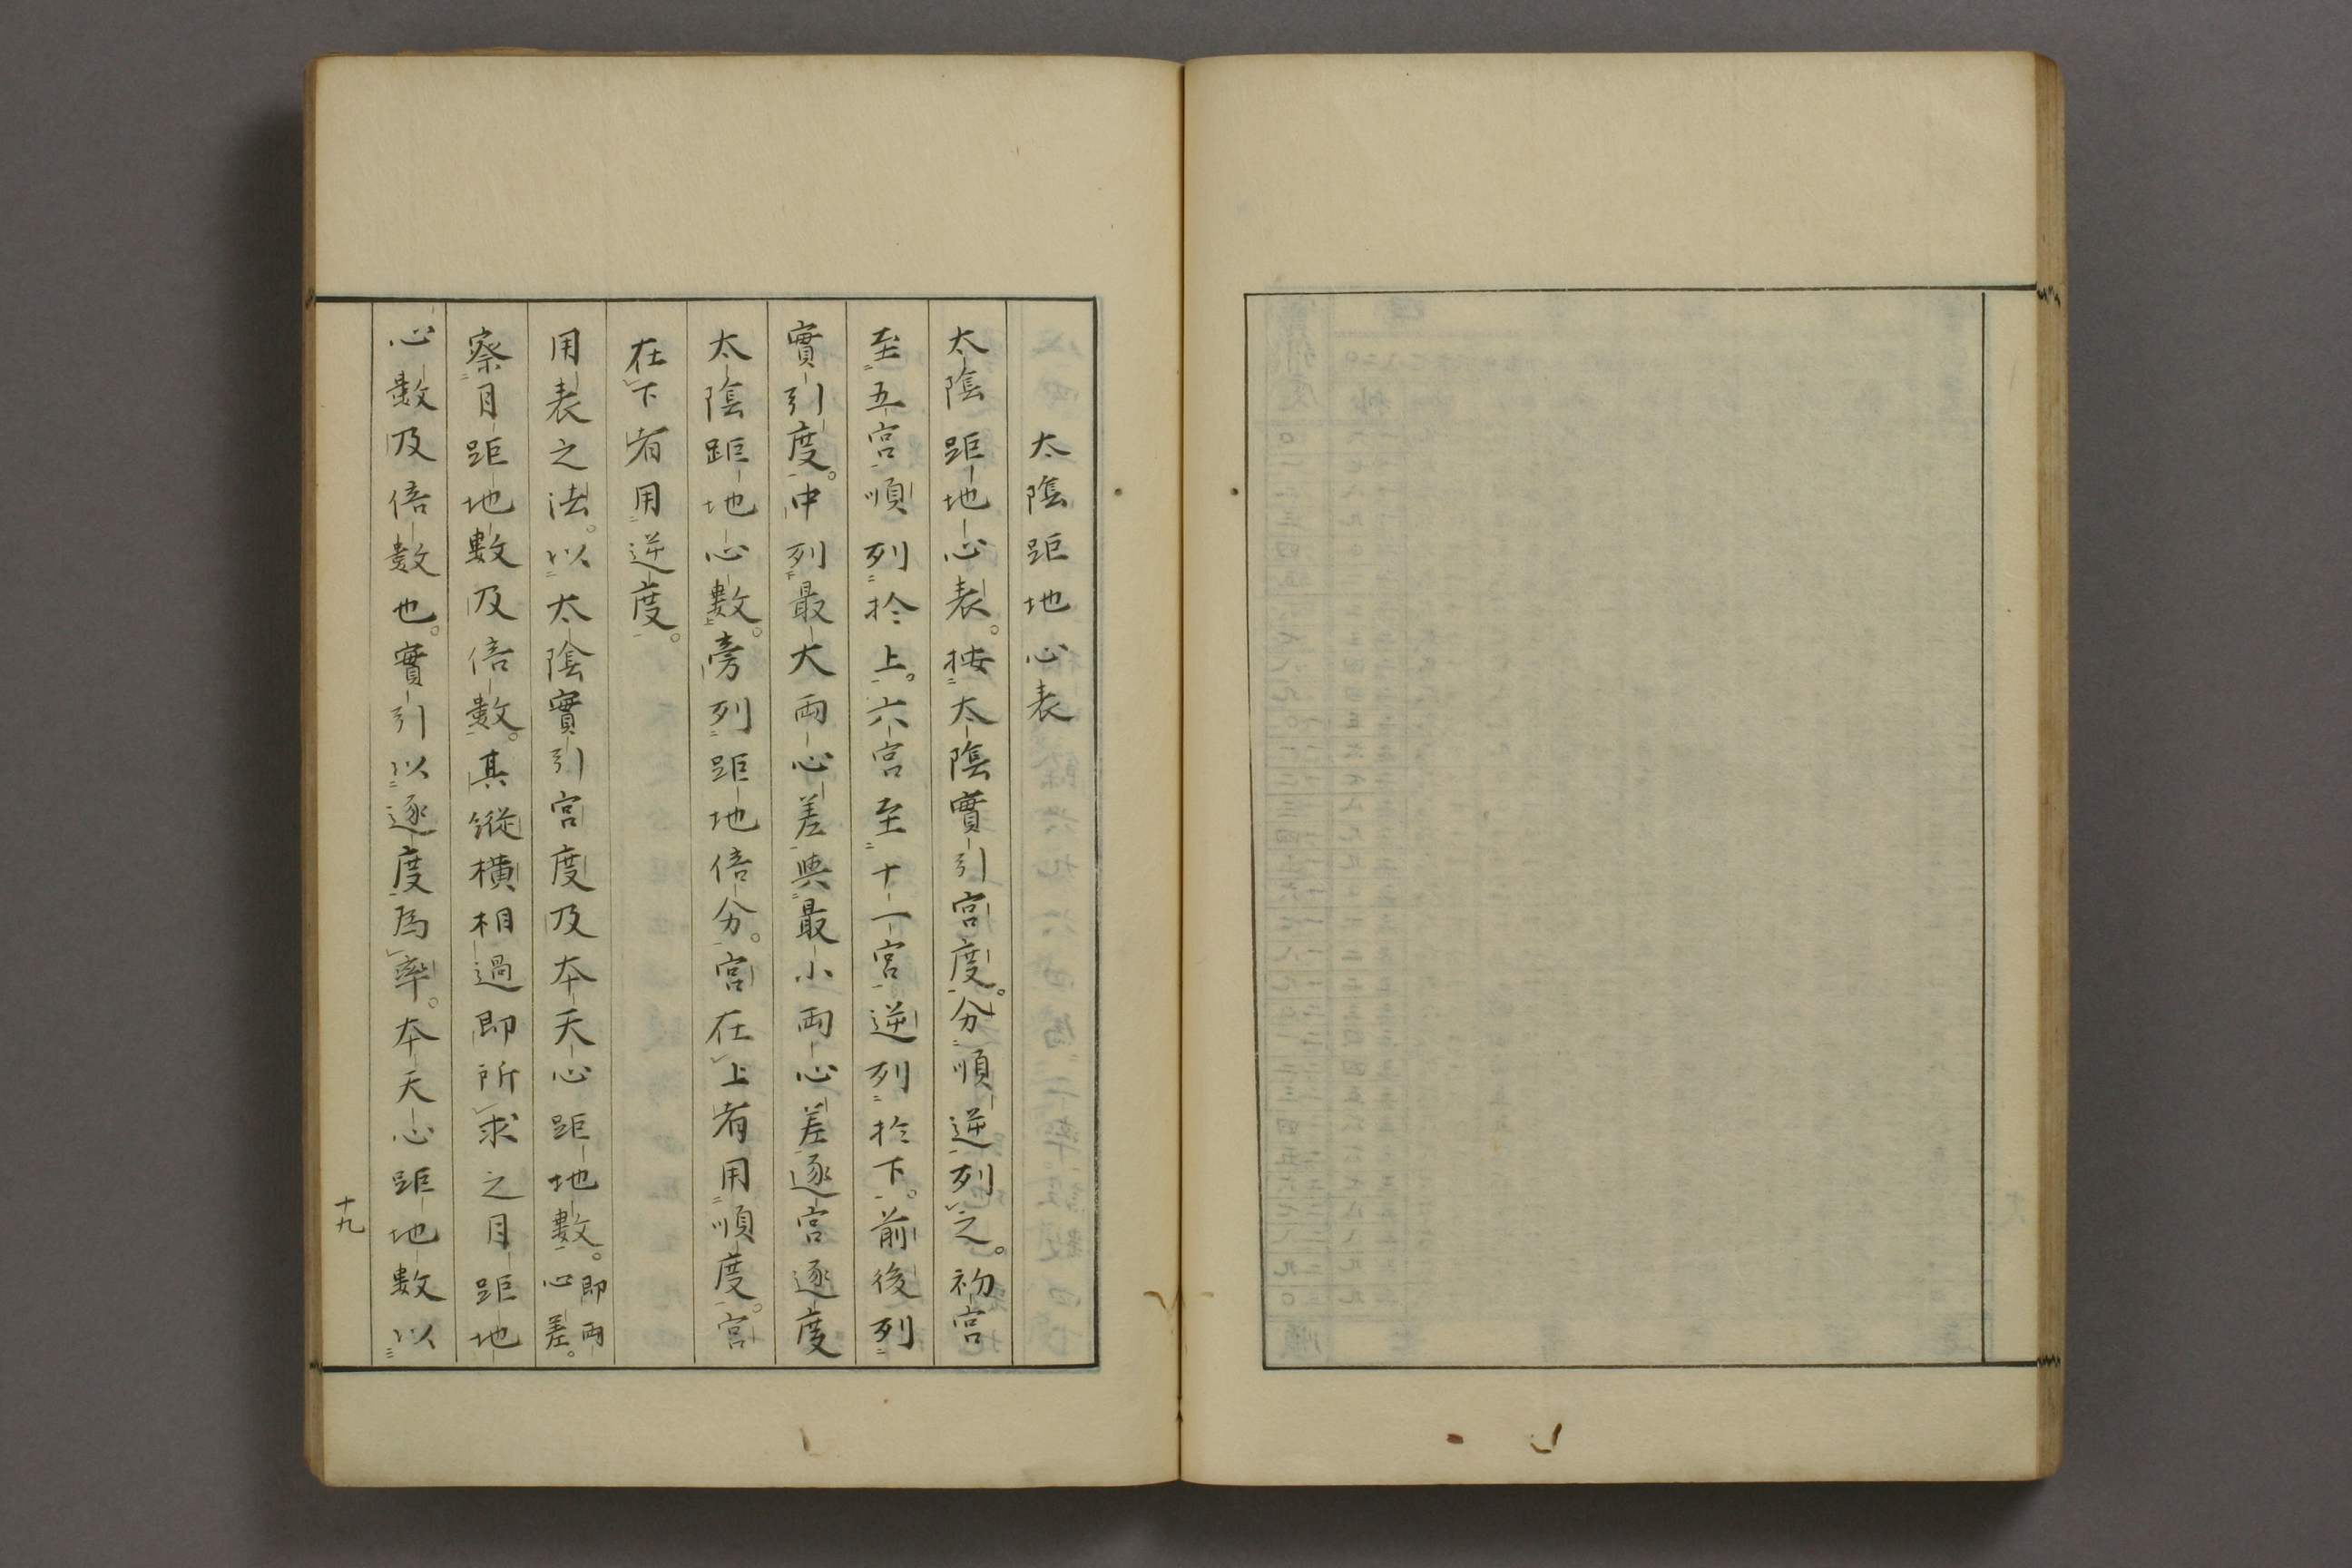 太陰距地心表
太陰距地心表。按太陰實引宮度。分順逆列之。初宮
至五宮順列於上。六宮至十一宮逆列於下。前後列
實引度。中列最大兩心差與最小兩心差逐宮逐度
太陰距地心數。旁列距地倍分。宮在上者用順度。宮
在下者用逆度。
用表之法。以太陰實引宮度及本天心距地數。即兩心差。
察月距地數及倍數。其縱橫相過即所求之月距地
心數及倍數也。實引以逐度為率。本天心距地數以
十九